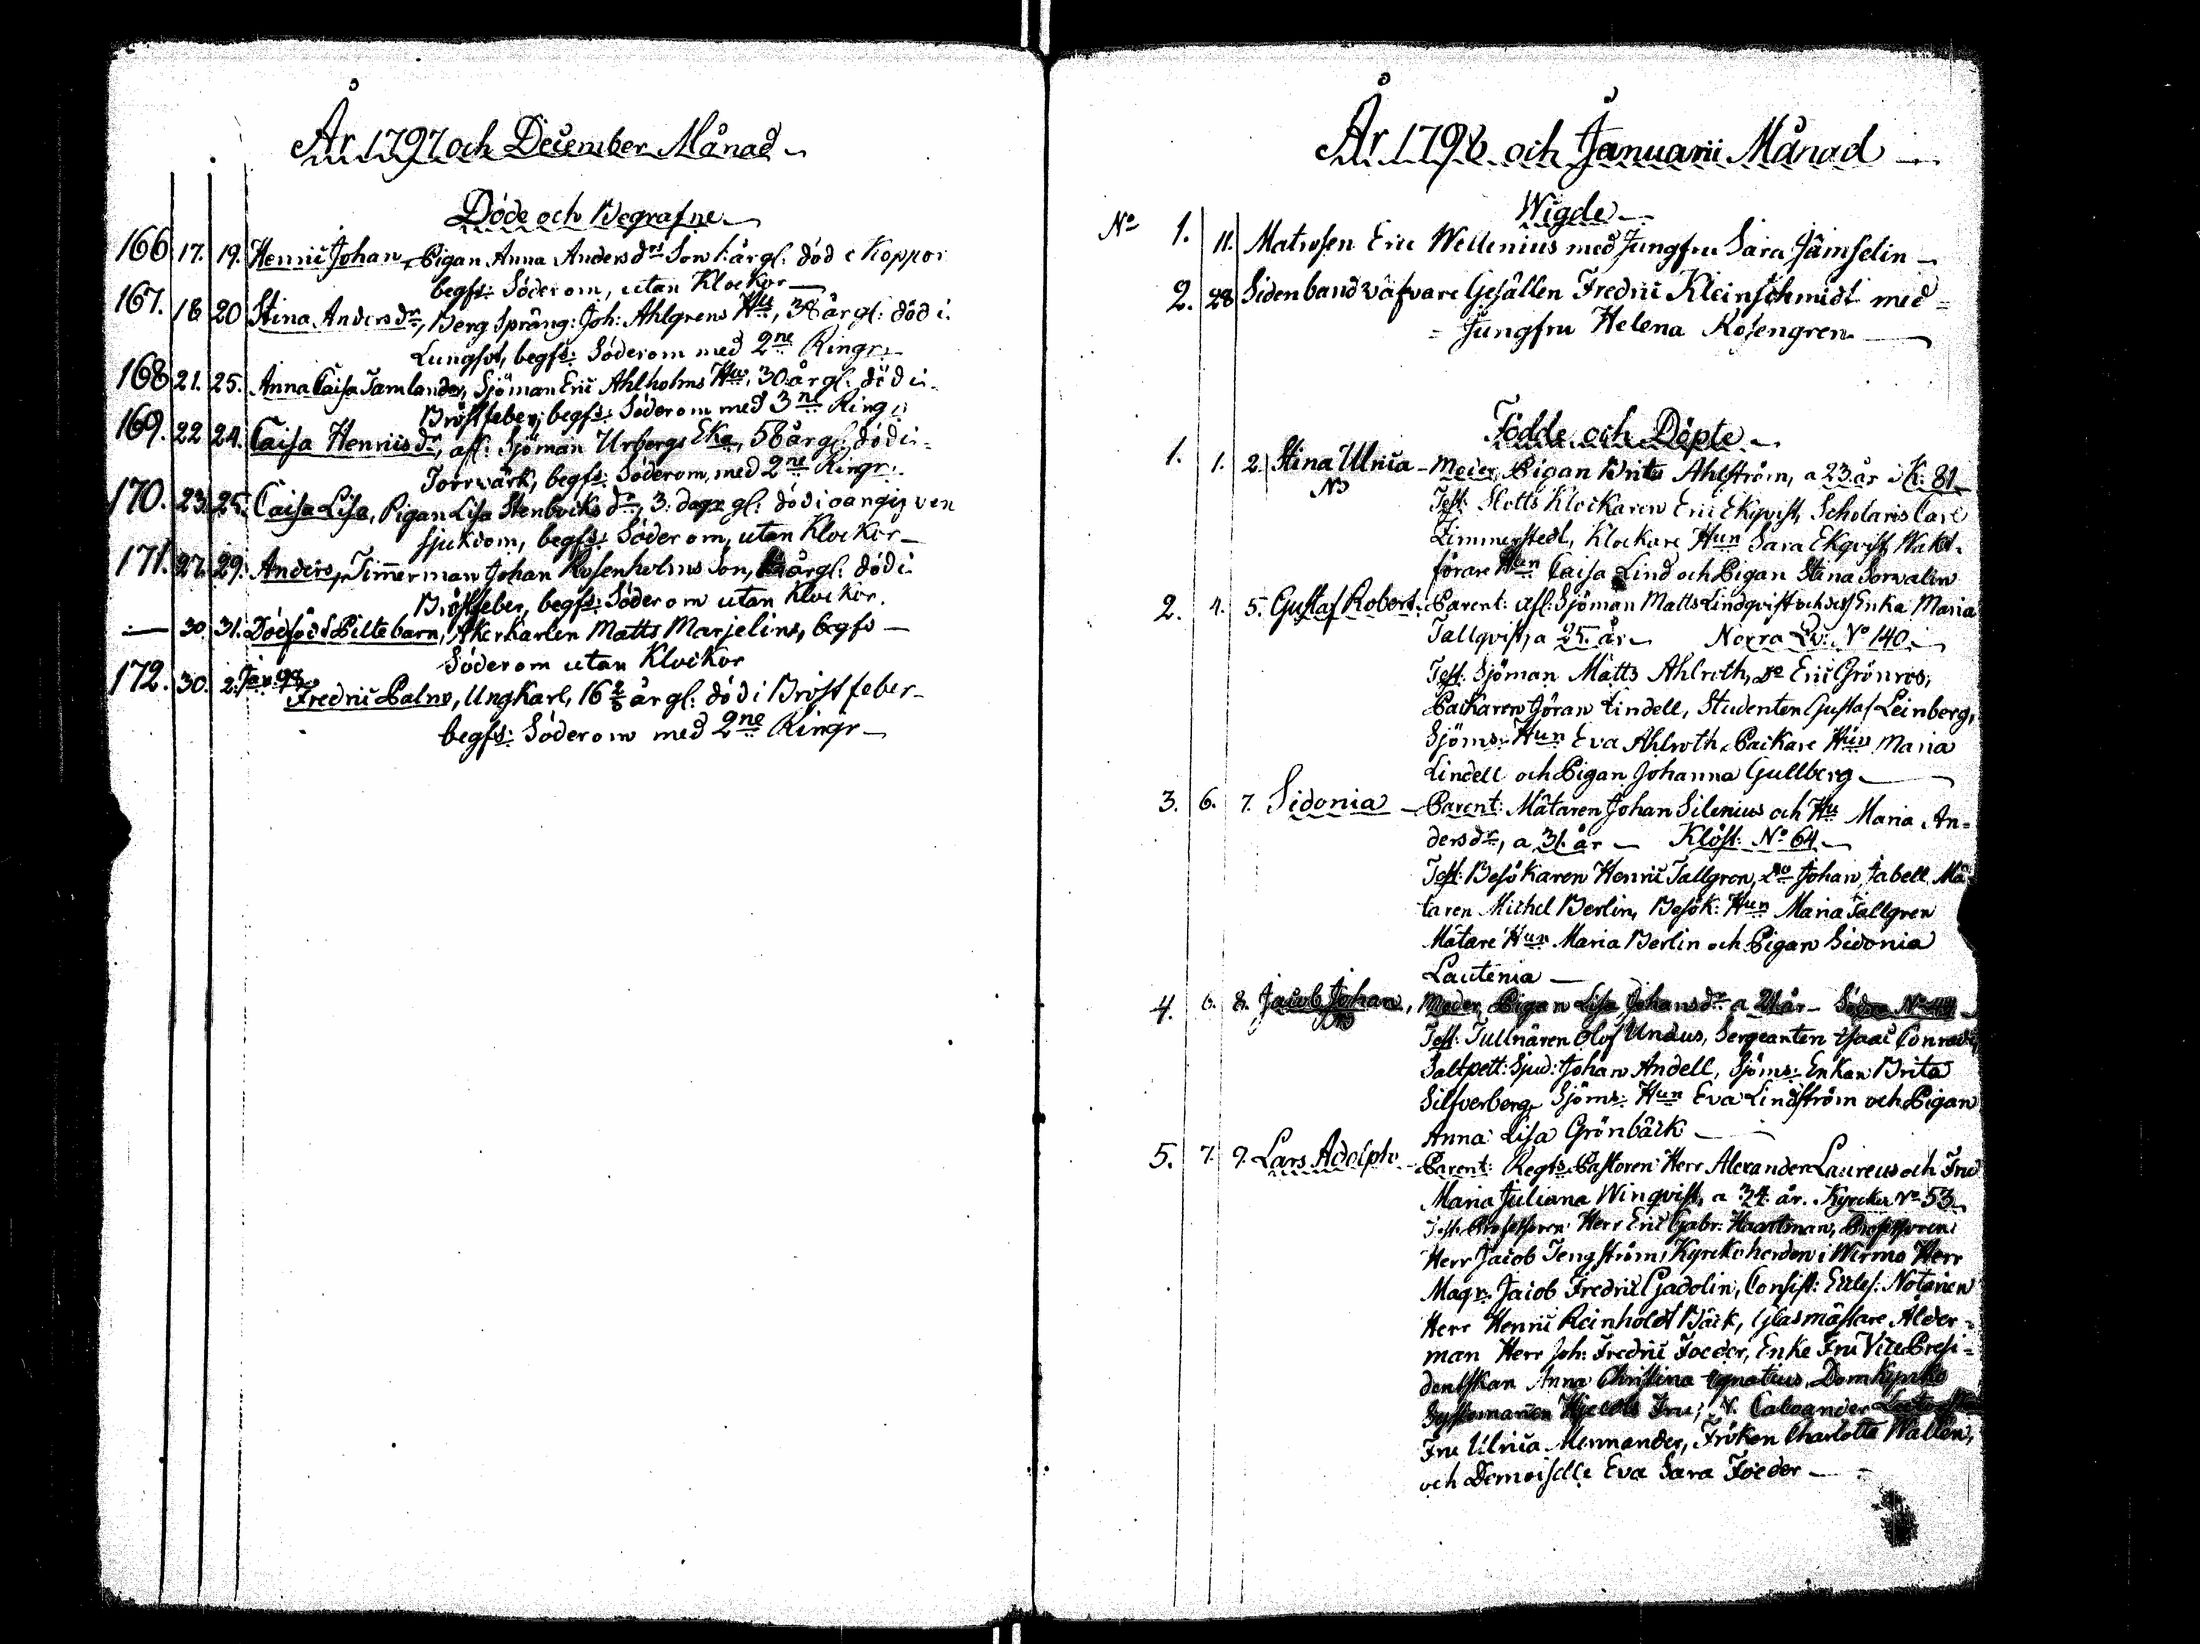 År 1797 och December Månad
Döde och Begrafne
166. 17. 19. Henric Johan, Pigan Anna Anders drs Son 1. år gl: död i Koppor
begfs: Söder om, utan Klockor
167. 18 20 Stina Anders dr, Berg Spräng: Joh: Ahlgrens Hu, 38 år gl: död i
Lungsot, begfs: Söder om med 2ne Ringr
168 21. 25. Anna Caisa Tamlander, Sjöman Eric Ahlholms Hu, 30 år gl: död i
Bröstfeber, begfs: Söder om med 3ne Ringr
169. 22 24. Caisa Henrics dr, afl: Sjöman Urbergs Eka, 58 år gl: död i
Torrwärk, begfs: Söder om, med 2ne Ringr
170. 23. 25. Caisa Lisa, Pigan Lisa Stenbviks dr, 3. dagr gl: död i oangifven
sjukdom, begfs: Söder om, utan Klockor
171. 27. 29. Anders, Timmerman Johan Rosenholms Son, år gl: död i
Bröstfeber, begfs: Söder om utan Klockor.
— 30 31. Dödfödt Piltebarn, Åkerkarlen Matts Marjelins, begfs
Söder om utan Klockor
172. 30. 2. Jan: 98.
Fredric Palno, Ungkarl, 16 2/3 år gl: död i Bröstfeber
begfs: Söder om med 2ne Ringr
År 1798 och Januarii Månad
Wigde
No 1. 11. Matrosen Eric Wellenius med Jungfru Sara Jämselin
2. 28 Sidenbandväfvare Gesällen Fredric Kleinschmidt med =
= Jungfru Helena Rosengren
Födde och Döpte
1. 1. 2. Stina Ulrica Moder, Pigan Brita Ahlström, a 23. år K: 81
NB Test: Slotts Klockaren Eric Ekqvist, Scholaris Carl
Zimmerstedt, Klockare Hun Sara Ekqvist, Wakt-
förare Hun Caisa Lind och Pigan Stina Sorvalin
2. 4. 5. Gustaf Robert. Parent: afl: Sjöman Matts Lindqvist och dess Enka Maria
Tallqvist, a 25. år Norra Qv: No 140.
Test: Sjöman Matts Ahlroth, Do Eric Grönros,
Packaren Göran Lindell, Studenten Gustaf Leinberg,
Sjöms: Hun Eva Ahlroth, Packare Hun Maria
Lindell och Pigan Johanna Gullberg
3. 6. 7. Sidonia Parent: Mätaren Johan Silenius och Hu Maria An-
ders dr, a 31. år Klöst: No 64
Test: Besökaren Henric Tallgren, Do Johan Tabell, Mä-
taren Michel Berlin, Besök: Hun Maria Tallgren
Mätare Hun Maria Berlin och Pigan Sidonia
Lautenia
4. 6. 8. Jacob Johan, Moder, Pigan Lisa Johans dr a 21 år Södra No 44
NB Test: Tullnären Olof Undus, Sergeanten Isaac
Saltpett: Sjud: Johan Andell, Sjöms: Enkan Brita
Silfverberg, Sjöms: Hun Eva Lindström och Pigan
Anna Lisa Grönbäck
5. 7. 9. Lars Adolph Parent: Regts Pastoren Herr Alexander Laureus och Fru
Maria Juliana Winqvist, a 34. år. Kyrcko No 53
Test: Professoren Herr Eric Gabr: Haartman, Professoren
Herr Jacob Tengström, Kyrckoherden i Wirmo Herr
Magr: Jacob Fredric Gadolin, Consist: Eccles: Notarien
Herr Henric Reinholdt Bäck, Glasmästare Ålder-
man Herr Joh: Fredric Foeder, Enke Fru Vice Presi-
dentskan Anna Christina Ignatius, Domkyrko
Sysslomannen Fru, V. Caloander
Fru Ulrica Mennander, Fröken Charlotta Wallen,
och Demoiselle Eva Sara Foeder